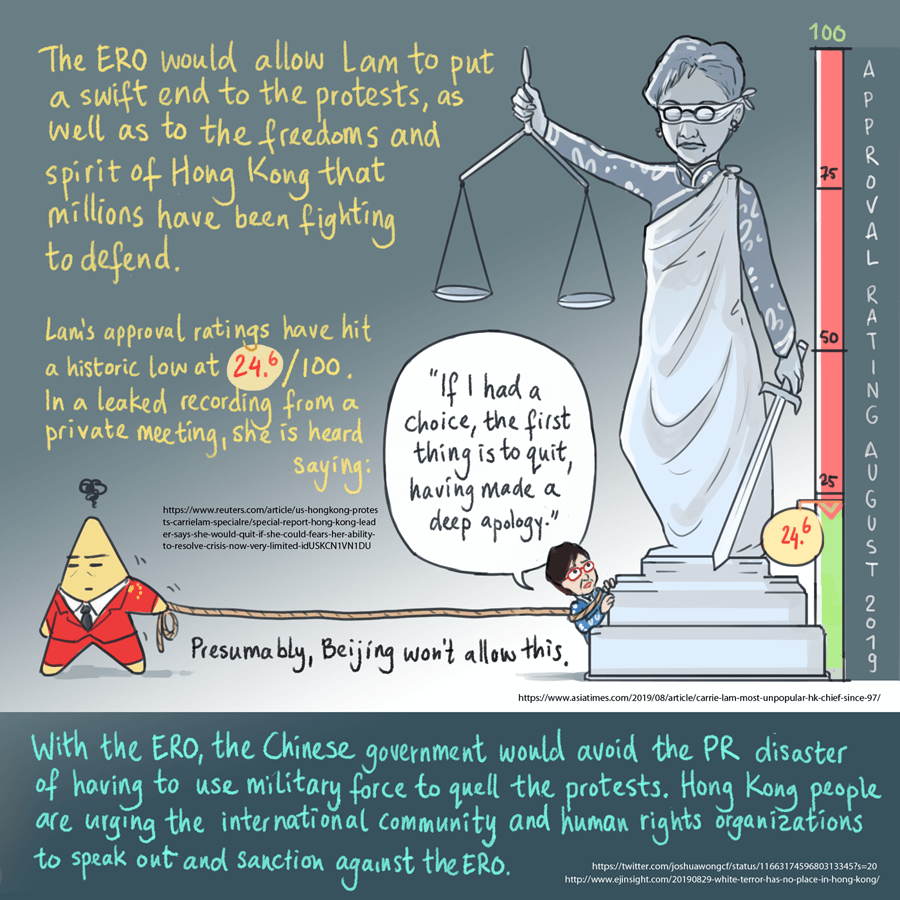 The ERO would allow Lam to put
a swift end to the protests, as
well as to the freedoms and
spirit of Hong Kong that
millions have been fighting
to defend.
Lam's approval ratings have hit
a historic low at 24.6/100.
In a leaked recording from a
private meeting, she is heard
saying:
https://www.reuters.com/article/us-hongkong-protes
ts-carrielam-specialre/special-report-hong-kong-lead
er-says-she-would-quit-if-she-could-fears-her-ability-
to-resolve-crisis-now-very-limited-idUSKCN1VN1DU
"If I had a
choice, the first
thing is to quit,
having made a
deep apology."
Presumably, Beijing won't allow this.
100
75
50
25
24.6
APPROVAL RATING AUGUST 2019
https://www.asiatimes.com/2019/08/article/carrie-lam-most-unpopular-hk-chief-since-97/
With the ERO, the Chinese government would avoid the PR disaster
of having to use military force to quell the protests. Hong Kong people
are urging the international community and human rights organizations
to speak out and sanction against the ERO.
https://twitter.com/joshuawongcf/status/1166317459680313345?s=20
http://www.ejinsight.com/20190829-white-terror-has-no-place-in-hong-kong/